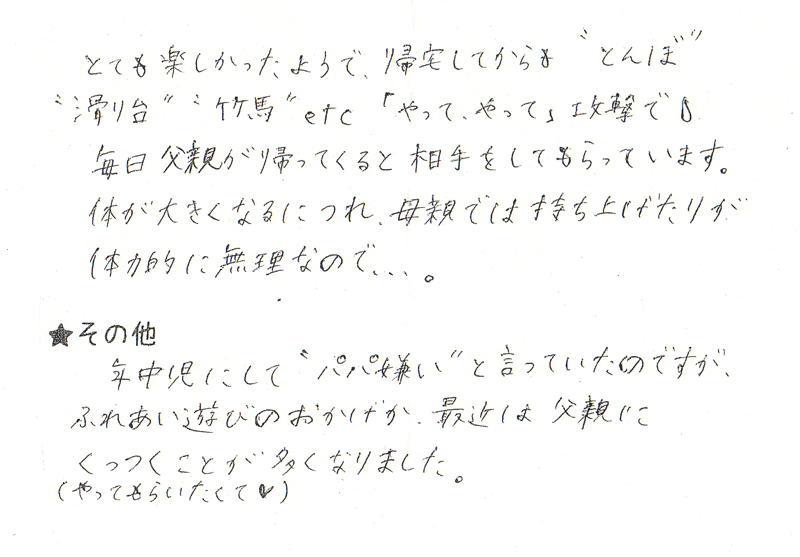 とても楽しかったようで、帰宅してからも〝とんぼ〟
〝滑り台〟〝竹馬〟etc「やって、やって」攻撃で♪
毎日父親が帰ってくると相手をしてもらっています。
体が大きくなるにつれ、母親では持ち上げたりが
体力的に無理なので、、、。
★その他
年中児にして〝パパ嫌い〟と言っていたのですが、
ふれあい遊びのおかげか、最近は父親に
くっつくことが多くなりました。
(やってもらいたくて♥)